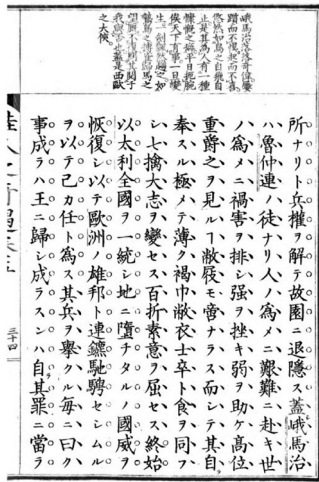 峨馬治落落奇偉
踣而不撓起而不喜
悠然如鳥之自飛自
止是其爲人有一種
慷慨之癖平日抱膝
俟天下有事一日變
生一劍躍然如
鳥之搏馬之
蓋是西歐
之大俠
所ナリト兵權ヲ解テ故園ニ退隱ス蓋峨馬治
ハ魯仲連ノ徒ナリ人ノ爲メニ艱難ニ赴キ世
ノ爲メニ禍害ヲ排シ强ヲ挫キ弱ヲ助ケ高位
重爵之ヲ見ルヿ敝屐モ啻ナラス而シテ其自
奉スル極メテ薄ク褐巾敝衣士卒ト食ヲ同フ
シ七擒大志ヲ變セス百折素意ヲ屈セス終始
以太利全國ヲ一統シ地ニ墮チタルノ國威ヲ
恢復シ以テ歐洲ノ雄邦ト連鑣馳騁セシムル
ヲ以テ己カ任ト爲ス其兵ヲ擧クル每ニ曰ク
事成ラハ王ニ歸シ成ラスンハ自其罪ニ當ラ
佳人之奇遇卷
三十四